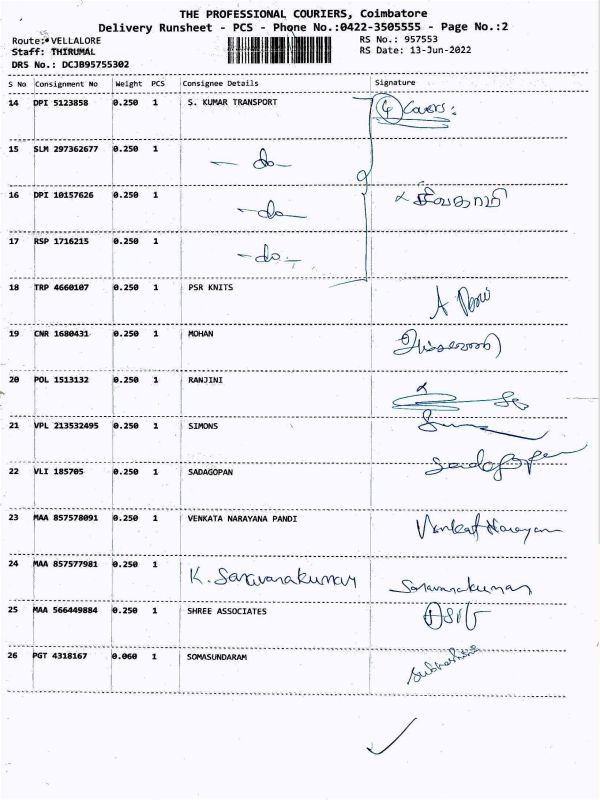 THE PROFESSIONAL COURIERS, Coimbatore
Delivery Runsheet - PCS - Phone No.:0422-3505555 - Page No.:2
Route: VELLALORE RS No.: 957553
Staff: THIRUMAL RS Date: 13-Jun-2022
DRS No.: DCJB95755302
S No Consignment No Weight PCS Consignee Details Signature
14 DPI 5123858 0.250 1 S. KUMAR TRANSPORT 4 Covers:
15 SLM 297362677 0.250 1 - do -
16 DPI 10157626 0.250 1 - do -
17 RSP 1716215 0.250 1 - do -
18 TRP 4660107 0.250 1 PSR KNITS
19 CNR 1680431 0.250 1 MOHAN
20 POL 1513132 0.250 1 RANJINI
21 VPL 213532495 0.250 1 SIMONS
22 VLI 185705 0.250 1 SADAGOPAN Sadagopan
23 MAA 857578091 0.250 1 VENKATA NARAYANA PANDI Venkat Narayan
24 MAA 857577981 0.250 1 K. Saravanakumar Saravanakumar
25 MAA 566449884 0.250 1 SHREE ASSOCIATES
26 PGT 4318167 0.060 1 SOMASUNDARAM